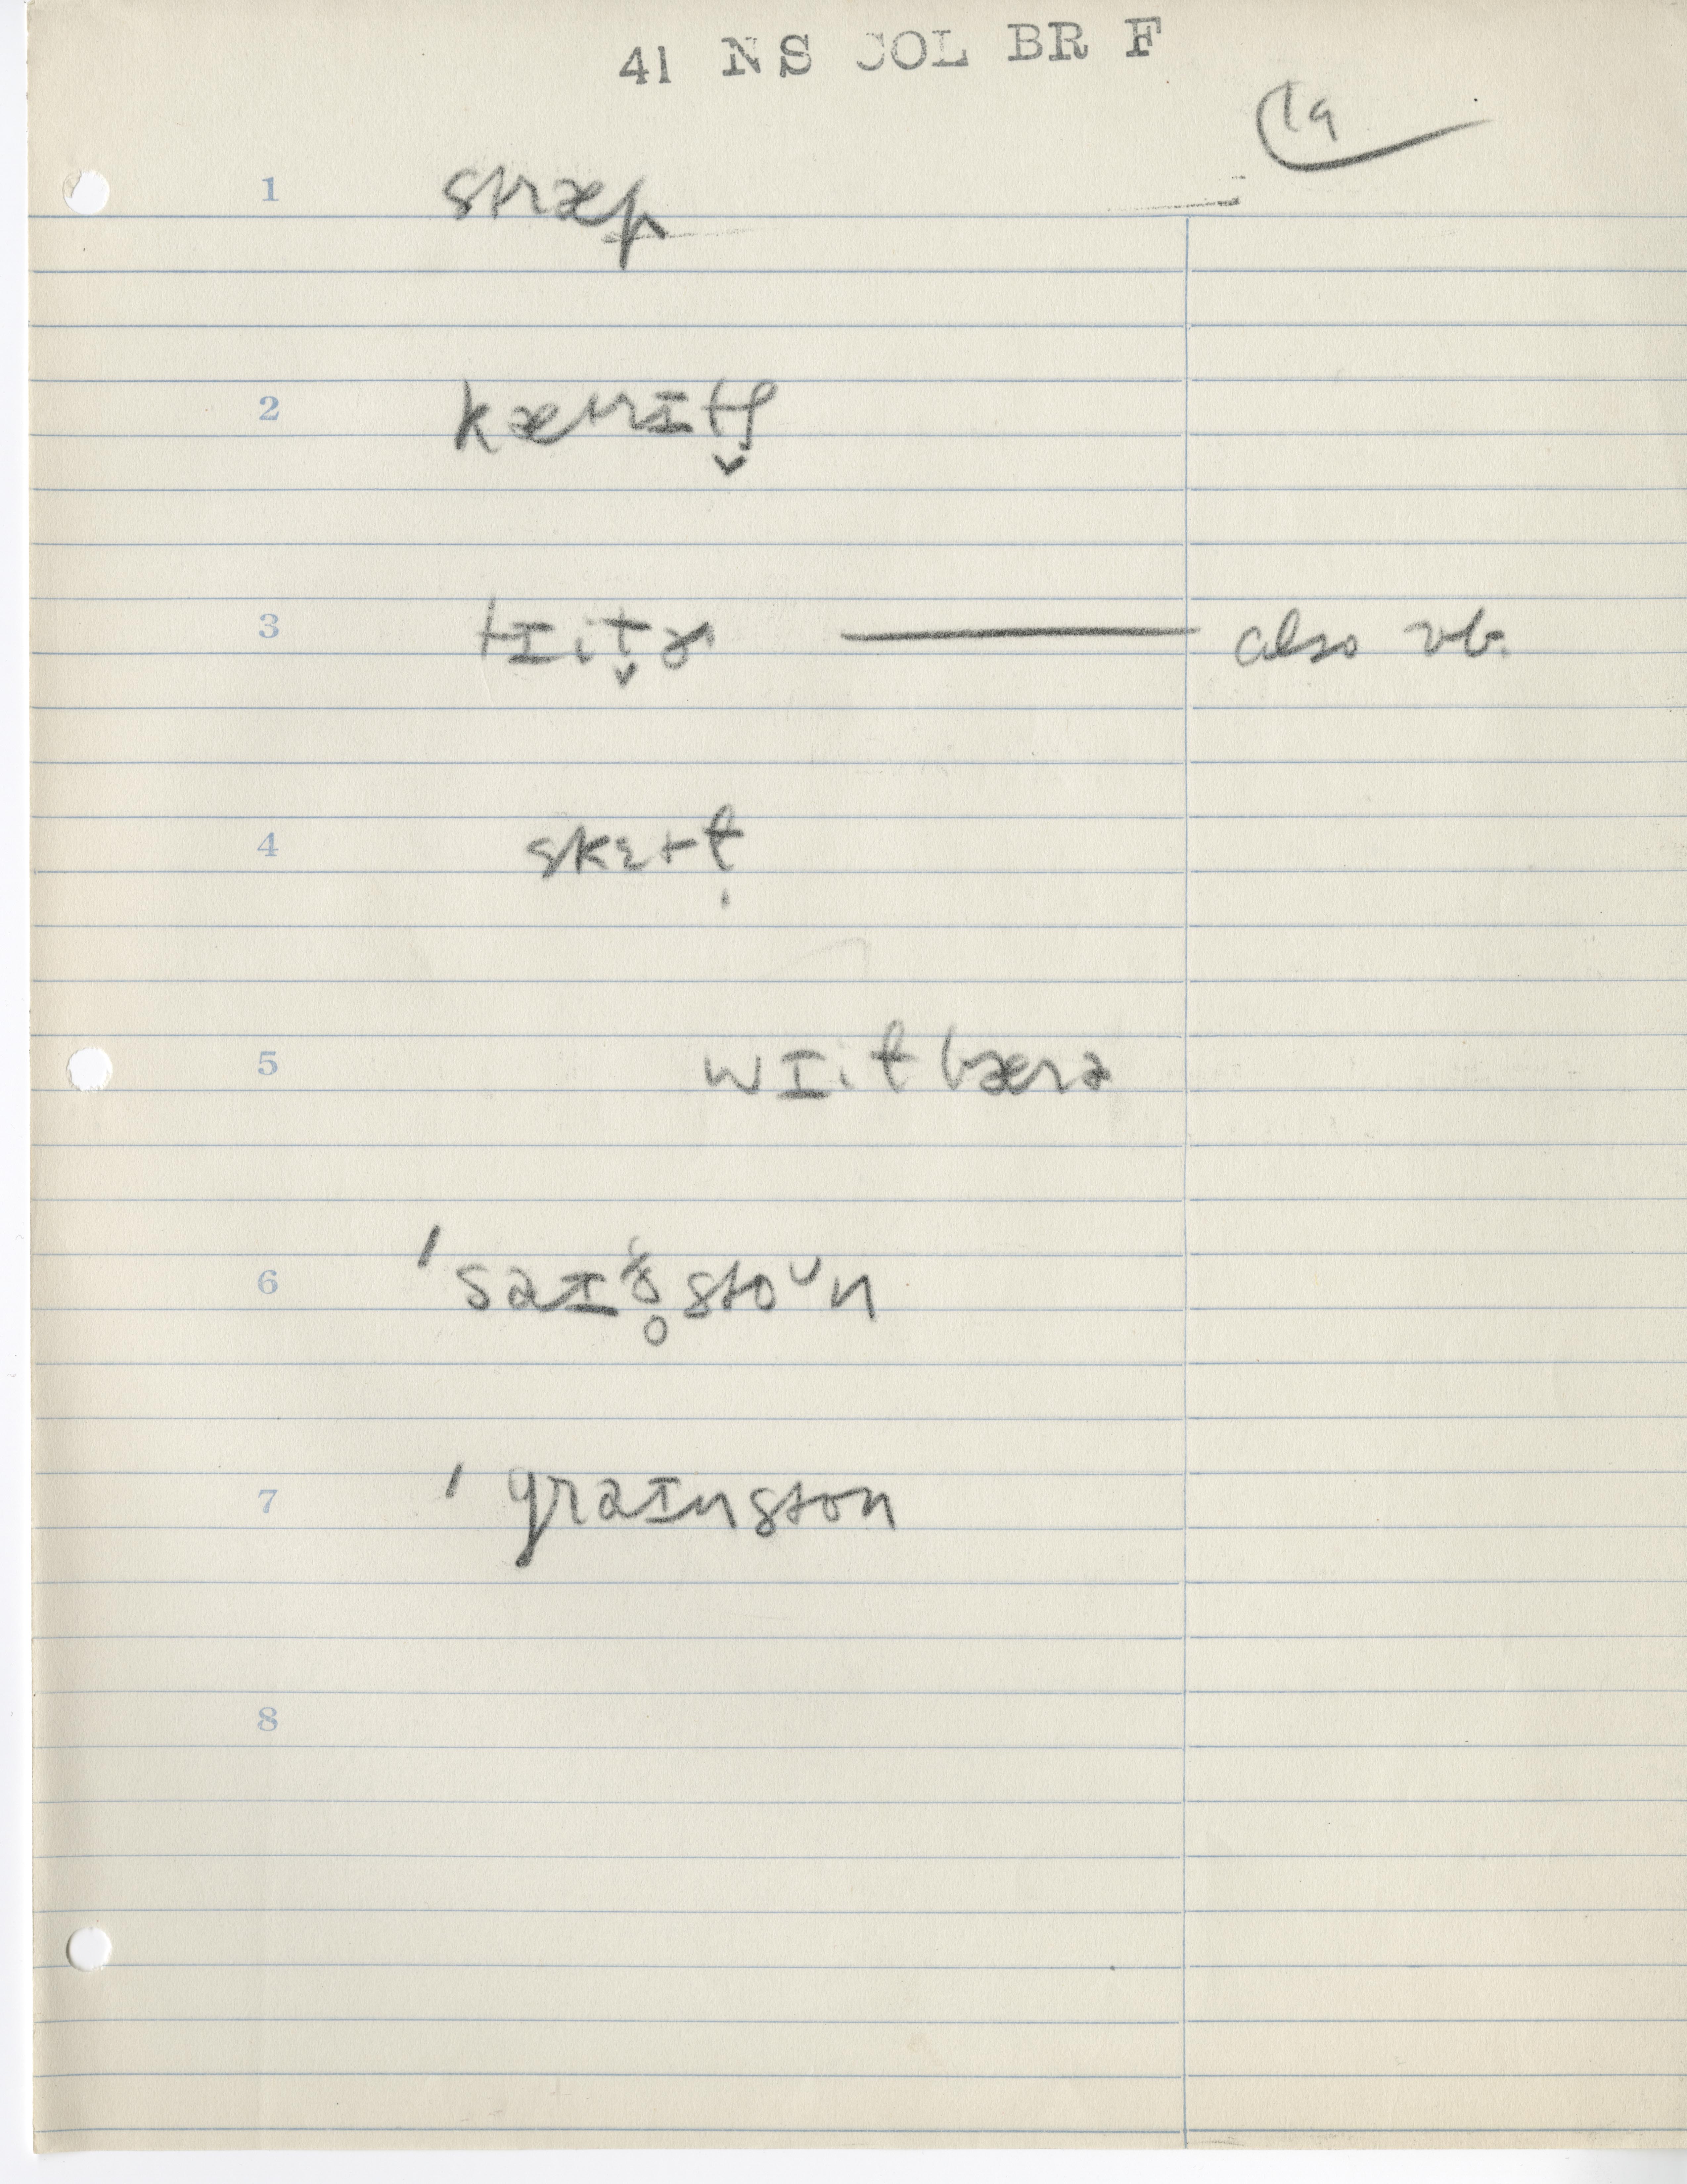 41 NS COL BR F
19
1 stræp
2 kætrɪtʃ̬
3 tɪit̬ɚ — also vb.
4 skɛrt̩
5 wɪit bærə
6 'saɪð̥stoᵘn
7 'graɪnston
8